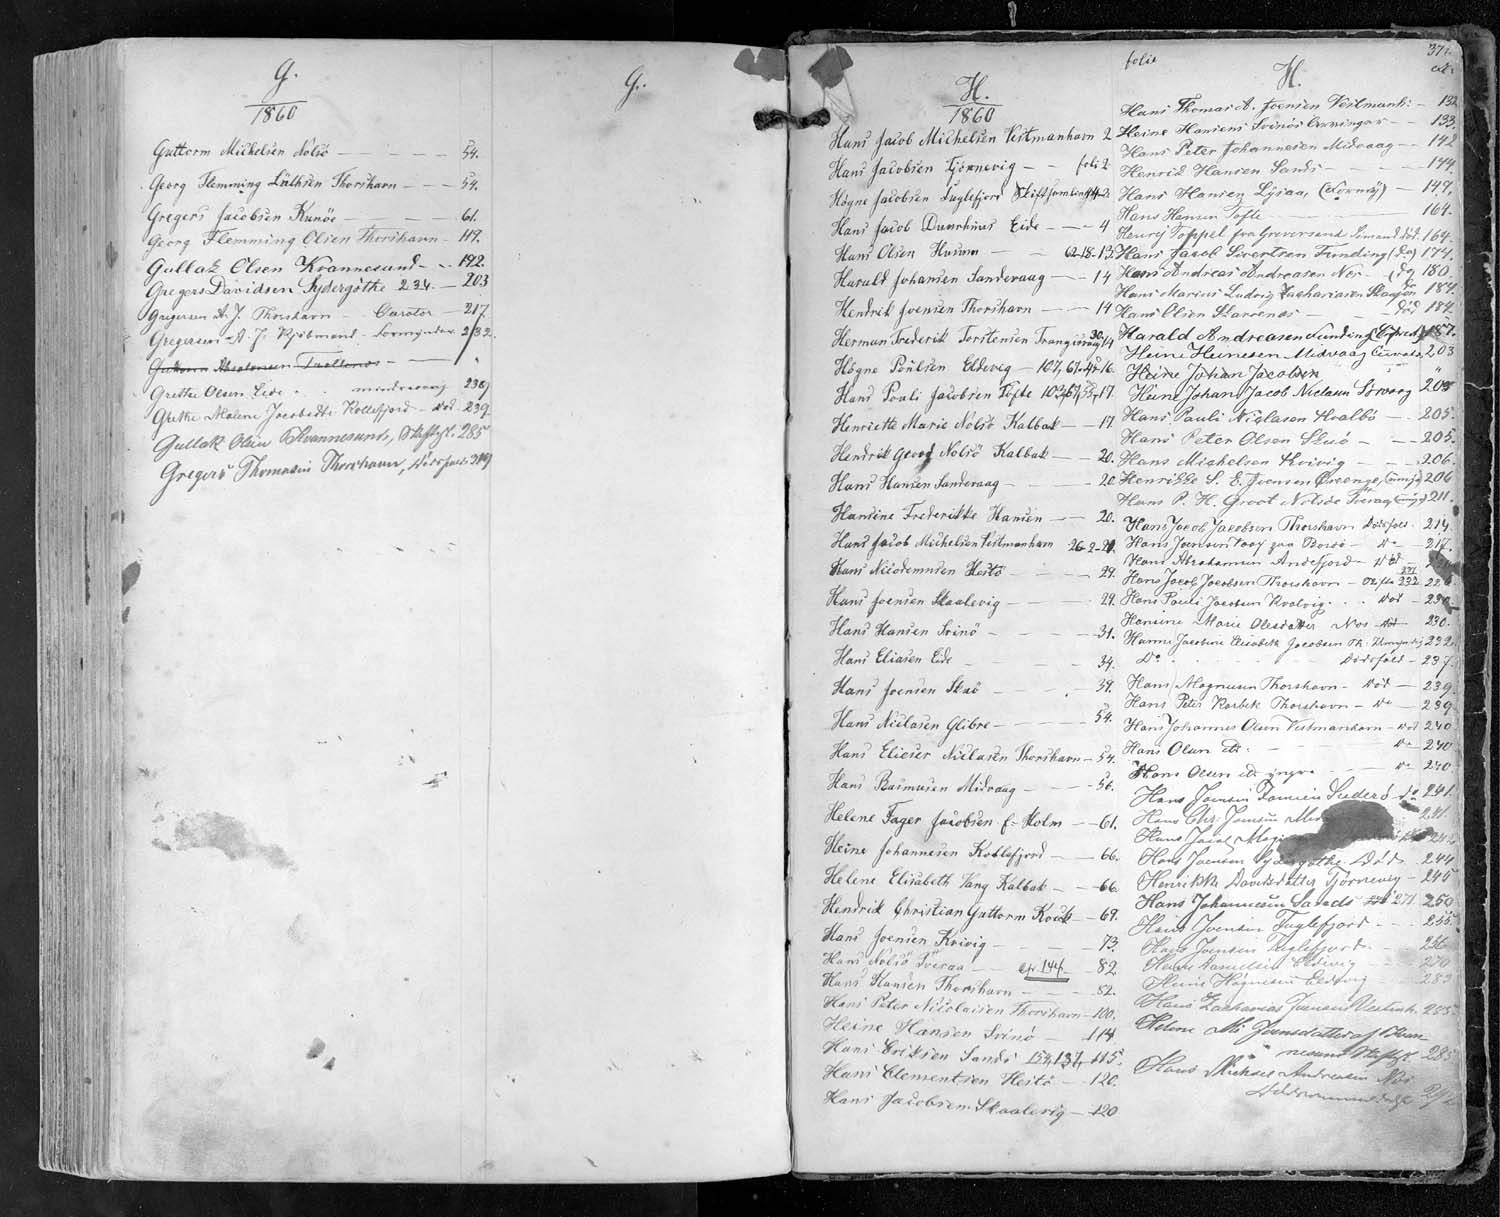 G.
1860
Guttorm Michelsen Nolsö — 54.
Georg Flemming Lüthsen Thorshavn — 54.
Gregers Jacobsen Kunöe — 61.
Georg Flemming Olsen Thorshavn — 119.
Gullak Olsen Kvannesund — 192.
Gregers Davidsen Sydergöthe 234. — 203
Gregersen A. J. Thorshavn — Curator — 217
Gregersen A. J. — 232.
Grethe Olsen Eide . . mindreaarig 239
Grethe Malene Jacobsdtr Kollefjord — död — 239
Gullak Olsen Kvannesund, Skiftesl. 285
Gregers Thomasen Thorshavn, 
G.
H.
1860
Hans Jacob Michelsen Vestmanhavn 2
Hans Jacobsen Tjörnevig — foli 2
Högne Jacobsen Fuglefjord Skiftsamling 
Hans Jacob Eide — 4
Hans Olsen Husum — 62-18-13
Harald Johansen Sandevaag — 14
Hendrik Joensen Thorshavn — 14
Herman Frederik Torstensen Trangisvaag 30. 14
Högne Poulsen Eldevig — 16.
Hans Pauli Jacobsen Tofte 17.
Henriette Marie Nolsö Kalbak — 17.
Hendrik Georg Nolsö Kalbak — 20.
Hans Hansen Sandevaag — 20
Hansine Frederikke Hansen — 20.
Hans Jacob Michelsen Vestmanhavn 26-2-21.
Hans Nicodemusen Hestö — 29.
Hans Joensen Skaalevig — 29.
Hans Hansen Svinö — 31.
Hans Eliasen Eide — 34.
Hans Joensen Skuö — 39.
Hans Niclasen Glibre — 54.
Hans Elieser Niclasen Thorshavn — 54.
Hans Rasmusen Midvaag — 56.
Helene Fager Jacobsen f. Holm — 61.
Heine Johannesen Kollefjord — 66.
Helene Elisabeth Vang Kalbak — 66.
Hendrik Christian Guttorm Kruse — 69.
Hans Joensen Kvivig — 73.
Hans Nolsö Tveraa — cfr 144 — 82.
Hans Hansen Thorshavn — 82.
Hans Peter Nicolaisen Thorshavn — 100.
Heine Hansen Svinö — 114
Hans Eriksen Sandö 154, 137, 115.
Hans Clementsen Hestö — 120.
Hans Jacobsen Skaalevig — 120
folie
H.
374
Hans Thomas A. Joensen Vestmanh: — 132
Heine Hansens Svinös Arvinger — 133.
Hans Peter Johannesen Midvaag — 142
Henrik Hansen Sands — 144.
Hans Hansen Lysaa, — 149.
Hans Hansen Tofte — 164.
Henry Toppel fra Graversend Sömand död. 164.
Hans Jacob Sivertsen Funding (do) 174.
Hans Andreas Andreasen Nes — (do 180.
Hans Marius Ludvig Zachariasen 184.
Hans Olsen — död 184.
Harald Andreasen Funding 187.
Heine Heinesen Midvaag 203
Heine Johan Jacobsen "
Heine Johan Jacob Niclasen Sörvaag 203
Hans Pauli Niclasen Hvalbö — 205.
Hans Peter Olsen Skuö — 205.
Hans Michelsen Kvivig — 206.
Henrikke S. E. Joensen 206
Hans P. H. Groot Nolsöe Tveraa 211.
Hans Jacob Jacobsen Thorshavn Dödsfald. 214
Hans Joensen fra Bordö — do — 217.
Hans Abrahamsen Andefjord — död
Hans Jacob Jacobsen Thorshavn — Skifte 232
Hans Pauli Jacobsen Kvalvig . . . död — 230
Hansine Marie Olesdatter Nes död 230.
Hanne Jacobine Elisabeth Jacobsen Th. 232.
Do — Dödsfald — 237
Hans Magnusen Thorshavn — död — 239.
Hans Peter Korbek Thorshavn — do — 239
Hans Johannes Olsen Vestmanhavn — död 240
Hans Olsen do . — do — 240
Hans Olsen do yngre — do — 240
Hans Joensen Famien Suderö do 241.
Hans Chr. Joensen 241.
Hans Jacob
Hans Joensen Sydergöthe. Död. 244
Henrikke Davidsdatter Tjörnevig — 245
Hans Johannesen Sands 271 250
Hans Joensen Fuglefjord — 255.
Hans Joensen Fuglefjord — 256
Heine Danielsen Eldevig — 270
Heine Högnesen Eldevig — 283
Hans Zacharias Joensen Vestmh. 285
Helene Joensdatter af Kvannesund Skiftesl. 285
Hans Michael Andreasen Nes